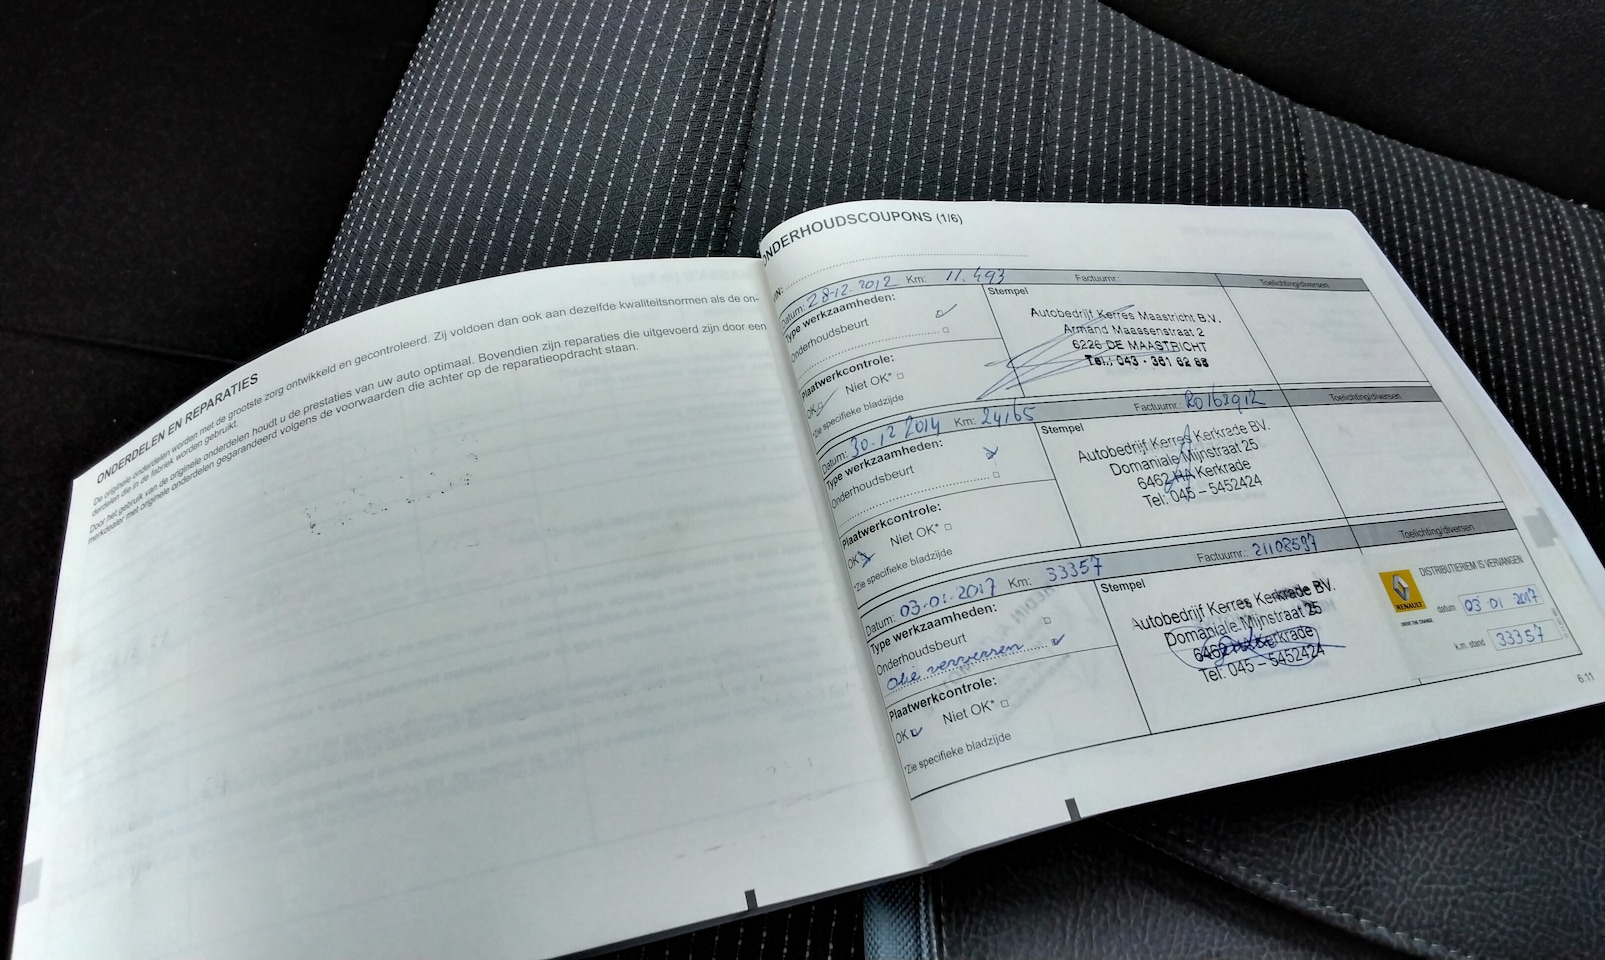 ONDERDELEN EN REPARATIES
De originele onderdelen worden met de grootste zorg ontwikkeld en gecontroleerd. Zij voldoen dan ook aan dezelfde kwaliteitsnormen als de on-
derdelen die in de fabriek worden gebruikt.
Door het gebruik van de originele onderdelen houdt u de prestaties van uw auto optimaal. Bovendien zijn reparaties die uitgevoerd zijn door een
merkdealer met originele onderdelen gegarandeerd volgens de voorwaarden die achter op de reparatieopdracht staan.
ONDERHOUDSCOUPONS (1/6)
VIN:
Datum: 28-12-2012 Km: 11.493 Factuurnr.: Toelichting/diversen
Type werkzaamheden:
Onderhoudsbeurt
Plaatwerkcontrole:
OK Niet OK*
*Zie specifieke bladzijde
Stempel
Autobedrijf Kerres Maastricht B.V.
Armand Maassenstraat 2
6226 DE MAASTRICHT
Tel.: 043 - 361 62 68
Datum: 30-12 2014 Km: 24165 Factuurnr.: 20162912 Toelichting/diversen
Type werkzaamheden:
Onderhoudsbeurt
Plaatwerkcontrole:
OK Niet OK*
*Zie specifieke bladzijde
Stempel
Autobedrijf Kerres Kerkrade BV.
Domaniale Mijnstraat 25
6462 HA Kerkrade
Tel: 045 - 5452424
Datum: 03-01-2017 Km: 33357 Factuurnr.: 21108597 Toelichting/diversen
Type werkzaamheden:
Onderhoudsbeurt
Olie verversen
Plaatwerkcontrole:
OK Niet OK*
*Zie specifieke bladzijde
Stempel
Autobedrijf Kerres Kerkrade BV.
Domaniale Mijnstraat 25
6462 Kerkrade
Tel: 045 - 5452424
RENAULT
DRIVE THE CHANGE
DISTRIBUTIERIEM IS VERVANGEN
datum 03 01 2017
k.m. stand 33357
6.11